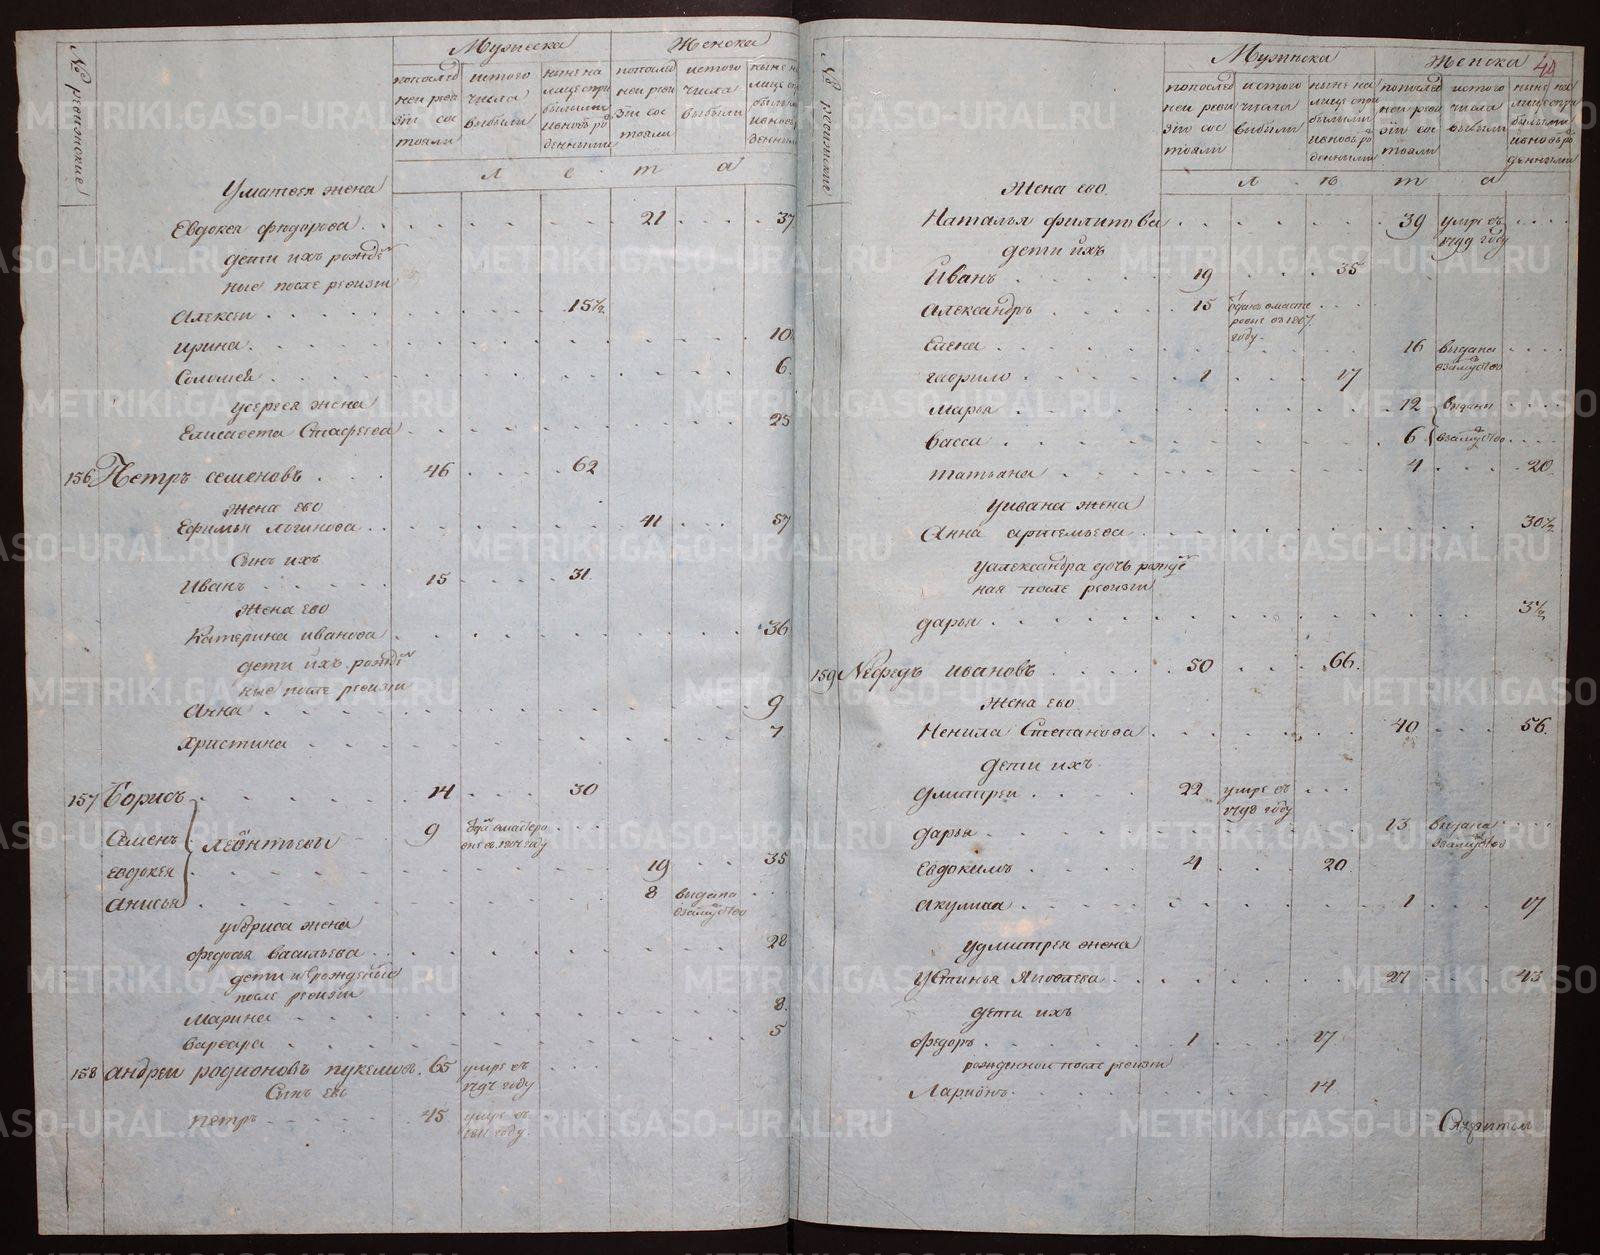 № ревижские
Мужеска
Женска
попослед
ней реви
зіи сос
тояли
истого
числа
выбыли
ныне на
лице спри
былыми
ивновь ро
денными
попослед
ней реви
зіи сос
тояли
истого
числа
выбыли
Л е т а
Уматвея жена
Евдокея федорова 21 37
дети ихъ рожде
ные после ревизіи
Алексеи 15½
ирина 10
Соломея 6
усергея жена
Елисавета 25
156 Петръ семеновъ 46 62
жена ево
Ефимья логинова 41 57
Сынъ ихъ
Иванъ 15 31
жена ево
Катерина иванова 36
дети ихъ рожде
ные после ревизіи
Анна 9
христина 7
157 Борисъ 14 30
Семенъ леонтьевы 9
евдокея 19 35
анисья 8 выдана
взамужство
убориса жена
федосья васильева 28
дети ихъ рожденые
после ревизіи
Марина 8
варвара 5
158 андреи родионовъ пукемовъ 65 умре въ
году
Сынъ ево
петръ 45 умре въ
1811 году
№ ревижские
Мужеска
Женска 49
попослед
ней реви
зіи сос
тояли
истого
числа
выбыли
ныне на
лице спри
былыми
ивновь ро
денными
попослед
ней реви
зіи сос
тояли
истого
числа
выбыли
ныне на
лице спри
былыми
ивновь ро
денными
л е т а
жена ево
Наталья филипова 39 умре въ
1799 году
дети ихъ
Иванъ 19 35
Александръ 15
въ 1807
году
Елена 16 выдана
взамужство
гаврило 1 17
марья 12 выданы
васса 6 взамужство
татьяна 4 20
уивана жена
Анна артемьева 30½
уалександра дочь рожде
ная после ревизіи
дарья 3½
159 Нефедъ ивановъ 50 66
жена ево
Ненила Степанова 40 56
дети ихъ
дмитреи 22 умре въ
1798 году
дарья 13 выдана
взамужство
Евдокимъ 4 20
акулина 1 17
удмитрея жена
Устинья Яковлева 27 43
дети ихъ
федоръ 1 17
рожденной после ревизіи
Ларионъ 14